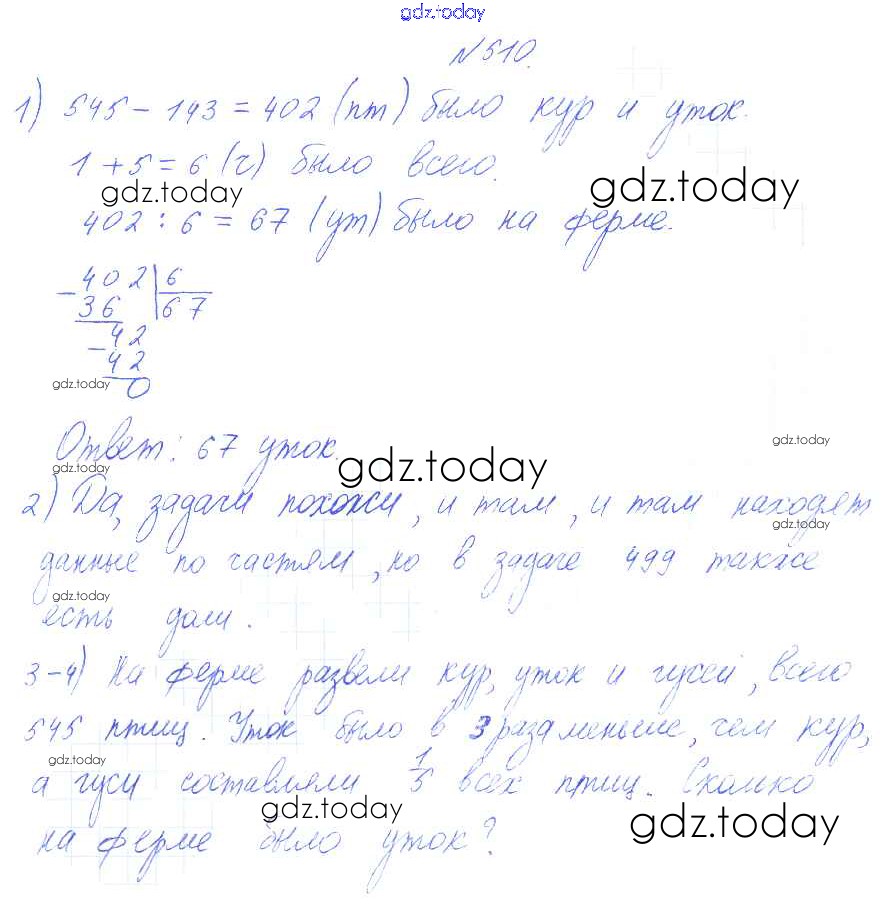 gdz.today
№510.
1) 545 - 143 = 402 (пт) было кур и уток.
1 + 5 = 6 (ч) было всего.
gdz.today
gdz.today
402 : 6 = 67 (ут) было на ферме.
- 402 | 6
36 | 67
- 42
42
gdz.today
0
gdz.today
Ответ: 67 уток.
gdz.today
gdz.today
2) Да, задачи похожи, и там, и там находят
gdz.today
данные по частям, но в задаче 499 также
gdz.today
есть доли.
3-4) На ферме развели кур, уток и гусей, всего
545 птиц. Уток было в 3 раза меньше, чем кур,
gdz.today
а гуси составляли 1/5 всех птиц. Сколько
gdz.today
gdz.today
на ферме было уток?